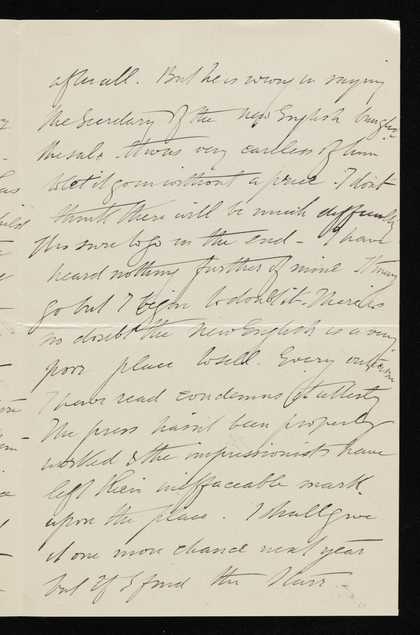 after all. But he is wrong in saying
the Secretary of the New English bungled
the sale. It was very careless of him
to let it go in without a price. I don't
think there will be much difficulty
It's sure to go in the end - I have
heard nothing further of mine. It may
go but I begin to doubt it. There is
no doubt the New English is a very
poor place to sell. Every
I have read condemns it utterly
The press hasn't been properly
worked & the impressionists have
left their ineffaceable mark
upon the place. I shall give
it one more chance next year
but if I find the